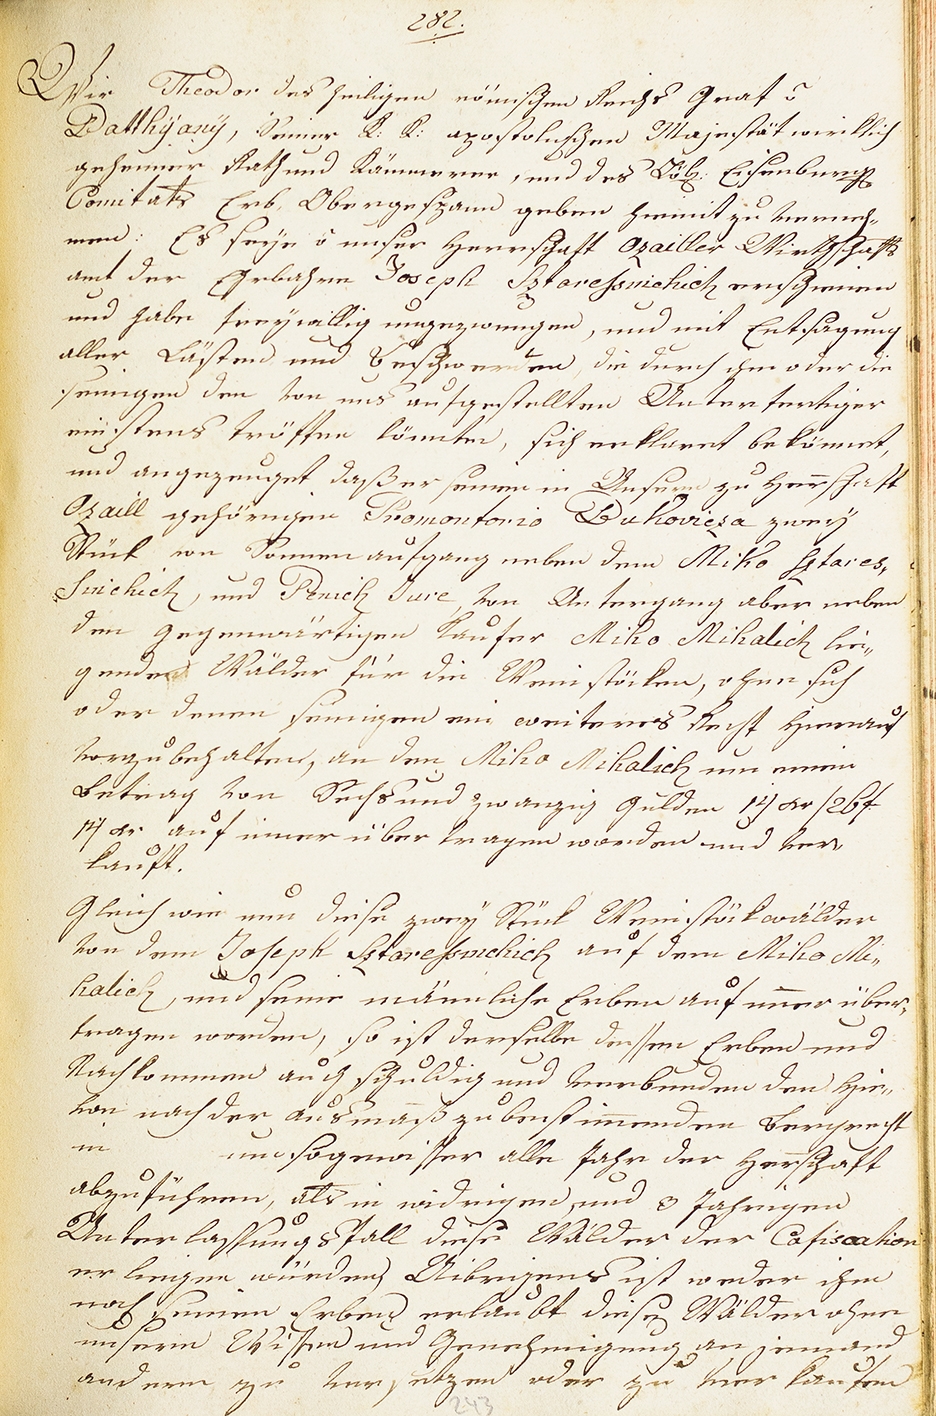 282.
Wir Theodor des heiligen römischen Reichs Graf v
Batthÿanÿ, Seiner K: K: apostolischen Majestät wirklich
geheimer Rath und Kämmerer, und des Löbl: Eisenburg
Comitats Erb. Obergespann geben hiemit zu verneh„
men: Es seye v unser Herrschaft Ozailler Wirthschafts
amt der Ehrbahre Joseph Sztaressinchich erschienen
und habe freywillig ungezwungen, und mit Entsagung
aller Lästen und Beschwerden, die durch ihn oder die
seinigen den von uns aufgestellten Unterfertiger
einstens tröffen könnten, sich erklaret bekönnet,
und angezeuget daß er seinen in Unserm zu Herrschaft
Ozaill gehörigen Promontorio Bukovicza zweÿ
Stück von Sonnenaufgang neben dem Miko Sztares„
sinchich, und Penich Jure, von Untergang aber neben
den gegenwärtigen Kaufer Miko Mihalich lie„
genden Wälder für die Weinstöcken, ohne sich
oder denen seinigen ein weiteres Recht hierauf
vorzubehalten, an den Miko Mihalich um einen
Betrag von Sechsundzwanzig Gulden 14 xr /26f
14 xr auf immer übertragen worden und ver„
kauft.
Gleich wie nun diese zweÿ Stück Weinstöckwälder
von dem Joseph Sztaressinchich auf dem Miko Mi„
halich, und seine männliche Erben auf immer über„
tragen worden, so ist derselbe dessen Erben und
Nachkommen auch schuldig und verbunden den hie„
von nach der Ausmaß zu bestimmenden Bergrecht
in um so gewisser alle Jahr der Herrschaft
abzuführen, als in widrigen und 3 Jahrigen
Unterlassungsfall diese Wälder der Cofiscation
erliegen würden, Uibrigens ist weder ihm
noch seinen Erben erlaubt diese Wälder ohne
unsern Wissen und Genehmigung an jemand
andern zu versetzen oder zu verkaufen
243